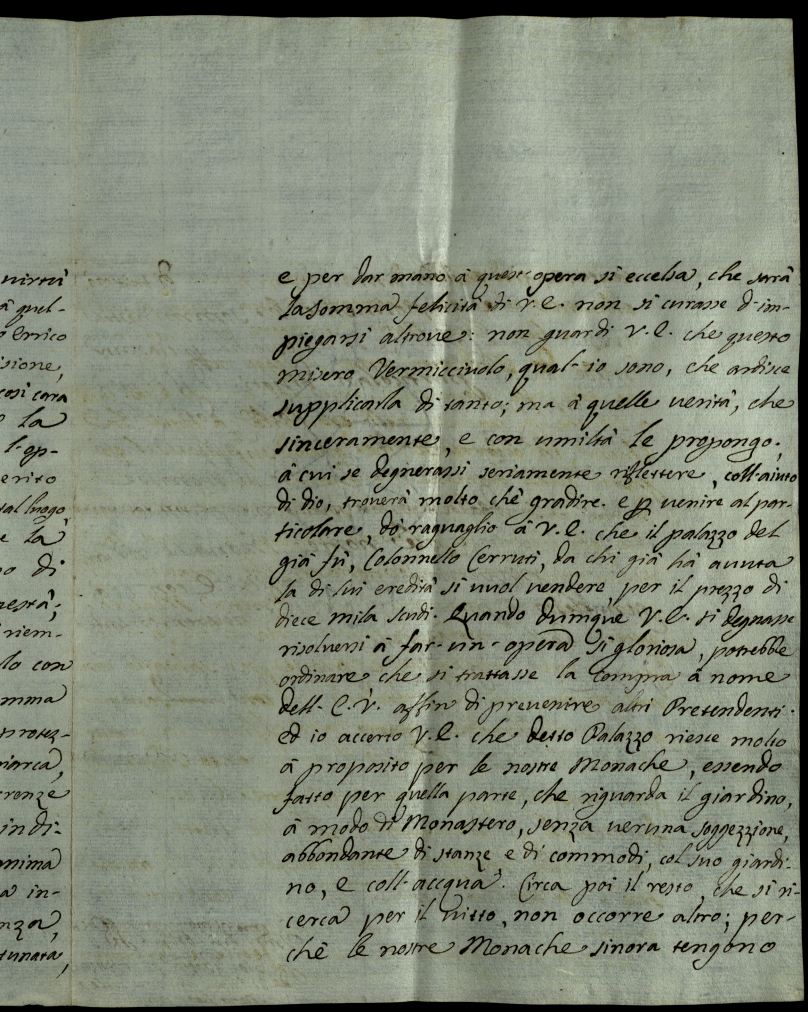 virtù
à quel-
o Errico
isione,
così cara
o la
l'op-
erito
tal luogo,
e la
no di
nestà;
riem-
lo con
mma
protez-
iarca,
renze
indi-
anima
a in-
nza,
tunata,
e per dar mano à quest'opera si eccelsa, che sarà
la somma felicità di V.E. non si curasse d'im-
piegarsi altrove: non guardi V.E. che questo
misero Vermicciuolo, qual' io sono, che ardisce
supplicarla di tanto; ma à quelle verità, che
sinceramente, e con umiltà le propongo;
à cui se degnerassi seriamente riflettere, coll'aiuto
di dio, troverà molto che gradire. e p venire al par-
ticolare, dò raguaglio à V.E. che il palazzo del
già fù, Colonnello Cerruti, da chi già hà avuta
la di lui eredità si vuol vendere, per il prezzo di
diece mila scudi. Quando dunque V.E. si degnasse
risolversi à far un' opera si gloriosa, potrebbe
ordinare che si trattasse la compra à nome
dell' E.V. affin di prevenire altri Pretendenti.
Ed io accerto V.E. che detto Palazzo riesce molto
à proposito per le nostre Monache, essendo
fatto per quella parte, che riguarda il giardino,
à modo di Monastero, senza veruna soggezzione,
abbondante di stanze e di commodi, col suo giardi-
no, e coll' accqua. Circa poi il resto, che si ri-
cerca per il vitto, non occorre altro; per-
chè le nostre Monache sinora tengono